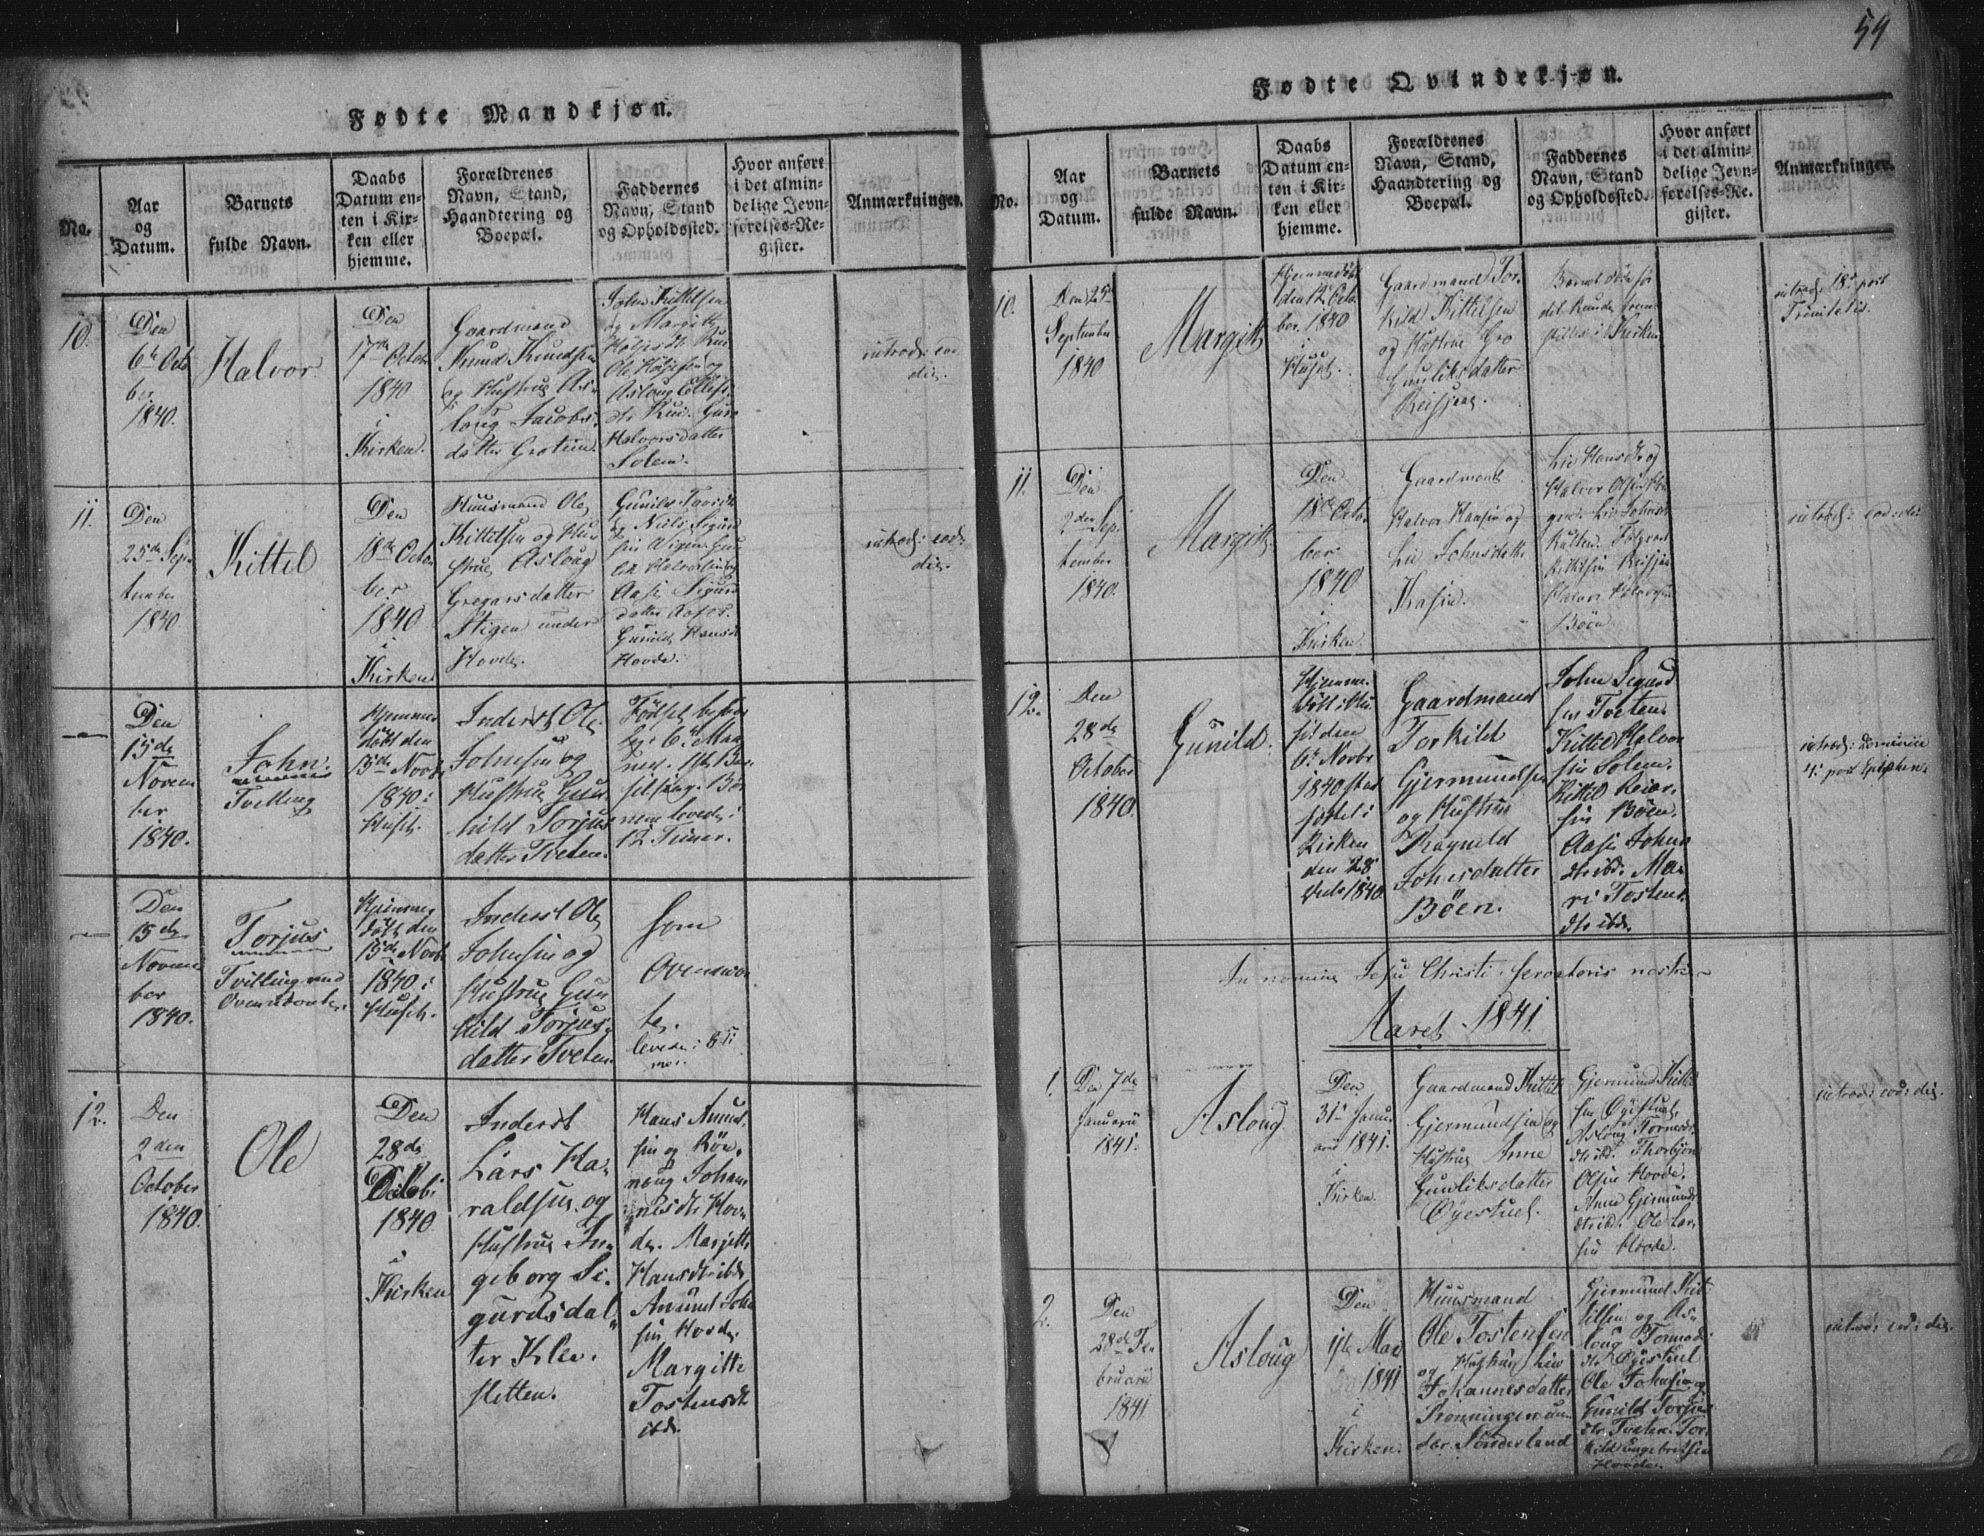 54
Fødte Mandkjøn.
No.
Aar
og
Datum.
Barnets
fulde Navn.
Daabs
Datum en-
ten i Kir-
ken eller
hjemme.
Forældrenes
Navn, Stand,
Haandtering og
Boepæl.
Faddernes
Navn, Stand
og Opholdssted.
Hvor anført
i det almin-
delige Jevn-
førelses-Re-
gister.
Anmærkninger.
10.
Den
6te Octo
ber
1840.
Halvor
Den
17de Octobr
1840
i
Kirken.
Gaardmand
Knud Knudsen
og Hustrue As-
loug Jacobs-
datter Grotim
John Kittilsen
og Margith
Ole
Asloug
Halvorsdatter
Solem.
introd: eo
die.
11.
Den
25de Sep
tember
1840
Kittel
Den
18de Octo
ber
1840
i
Kirken
Huusmand Ole
Kittelsen og Hu
strue Asloug
Gregarsdatter
Stigen under
Hovde.
og Niels Sigurd
Halvorsen
Aase Sigurd
datter
Gunild Hansd
Hovde.
introd: eod:
die.
Den
15de
Novem
ber
1840.
John
Tvilling
Hjemme
døbt den
15de Novb
1840 i
Huset.
Inderst Ole
Johnsen og
Hustrue Gun
hild Torjus
datter Tveten.
12 Timer.
Den
15de
Novem
ber
1840.
Torjus
Tvilling med
Ovennævnte.
Hjemme
døbt den
15de Novb
1840 i
Huset.
Inderst Ole
Johnsen og
Hustrue Gun
hild Torjus
datter Tveten
som
Ovennævn
te.
12.
Den
2den
October
1840.
Ole
Den
28de
1840
i
Kirken
Inderst
Lars Ha-
raldsen og
Hustrue In-
geborg Si-
gurdsdat-
ter Klev-
stetten.
Hans Amund
sen og Rön-
noug Johan
nesdtr Hov
de. Margith
Hansdtr ibd
Amund John
sen Hovde.
Margith
Tostensdt
ibd.
Fødte Qvindekjøn.
No.
Aar
og
Datum.
Barnets
fulde Navn.
Daabs
Datum en-
ten i Kir-
ken eller
hjemme.
Forældrenes
Navn, Stand,
Haandtering og
Boepæl.
Faddernes
Navn, Stand
og Opholdssted.
Hvor anført
i det almin-
delige Jevn-
førelses-Re-
gister.
Anmærkninger.
10.
Den 25de
September
1840
Margith
Hjemmedøbt
den 12 Octo
ber 1840
i
Huset.
Gaardmand Tor-
kild Kittilsen
og Hustrue Gro
Gunliksdatter
Reisjeng.
Barnet døde før
det kunde frem
stilles i Kirken
introd: 18de post
Trinitatis.
11.
Den
2den Sep
tember
1840.
Margith
Den
18de Octo
ber
1840
i
Kirken
Gaardmand
Halvor Hansen og
Liv Johnsdatter
Liv Hansdtr og
Halvor
Halvor Halvorsen
Böen
introd: eod: die:
12.
Den
28de
October
1840.
Gunild.
Hjemme-
døbt i Hu
set den
6te Novbr
1840 stad
fæstet i
Kirken
den
1840
Gaardmand
Torkild
Gjermundsen
og Hustrue
Ragnild
Johnsdatter
Böen.
John Sigurd
sen Tveten.
Kittel Halvor
sen Solem.
Kittel Reiar-
sen Böen.
Aase Johns
dtr ibd. Ma-
ri Tostens
dtr ibd.
introd: Dominica
4. post Epiphan:
In nomine Jesu Christi servatoris nostri
Aaret 1841.
1.
Den 7de
Januarii
1841.
Asloug
Den
31te Janu-
arii 1841.
i
Kirken
Gaardmand Kittel
Gjermundsen og
Hustrue Anne
Gunliksdatter
Øyestuel.
Gjermund Kittel
sen Øyestuel,
Asloug Tormods
dtr ibd. Thorbjön
Olsen Hovde.
Anne Gjermunds
dtr ibd. Ole Lar
sen Hovde.
introd: eod: die.
2.
Den
28de Fe
bruarii
1841
Asloug
Den
1841
i
Kirken.
Huusmand
Ole Tostensen
og Hustrue Liv
Johannesdatter
Rönningen un-
der Sönderland
Gjermund Kit
tilsen og As-
loug Tormods
dtr Øyestuel
Ole Johnsen og
Gunild Torjus
dtr Tveten. Tor
kild Engebretsen
Hovde.
introd: eod: die.